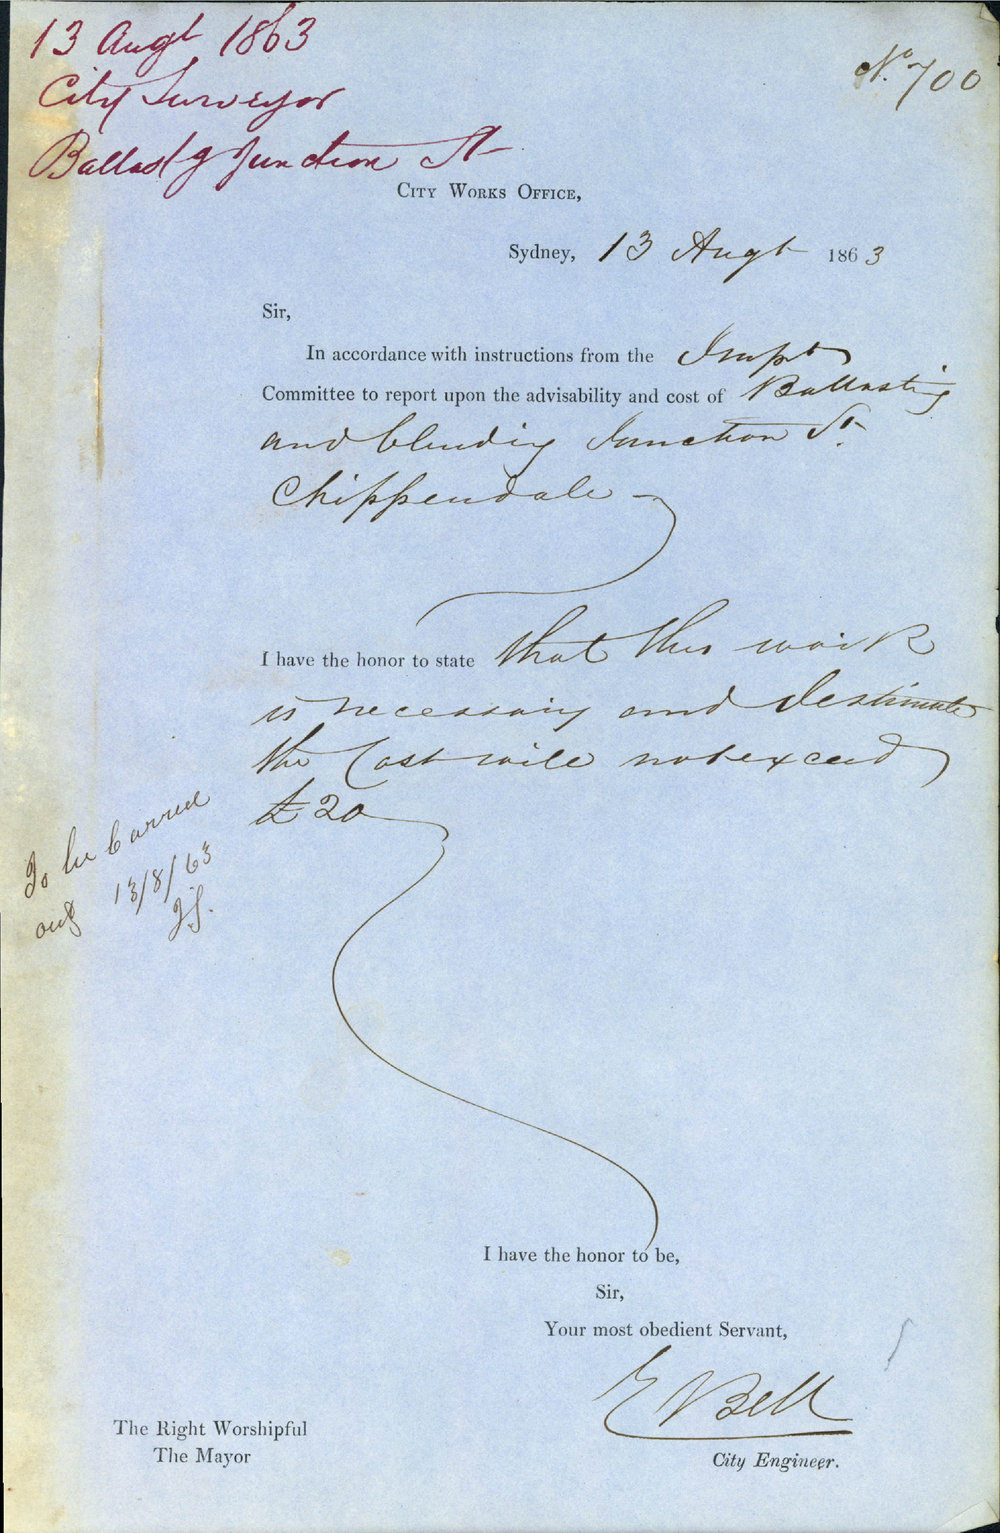 13 Augt 1863
City Surveyor
Ballastg Junction St
No. 700
City Works Office,
Sydney, 13 Augt 1863
Sir,
In accordance with instructions from the Impt
Committee to report upon the advisability and cost of Ballasting
and blinding Junction St.
Chippendale
I have the honor to state that this work
is necessary and I estimate
the Cost will not exceed
£20
To be Carried
out 13/8/63
I have the honor to be,
Sir,
Your most obedient Servant,
E Bell
City Engineer.
The Right Worshipful
The Mayor